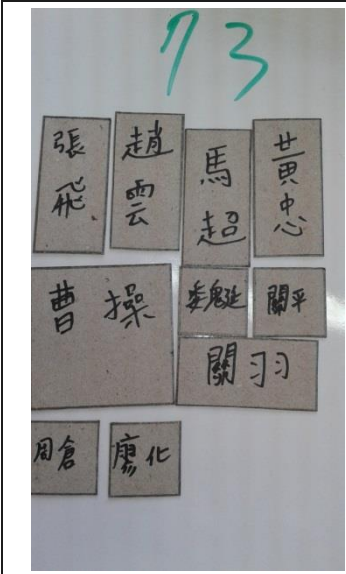 73
張飛 趙雲 馬超 黃忠
曹操 魏延 關平
關羽
周倉 廖化